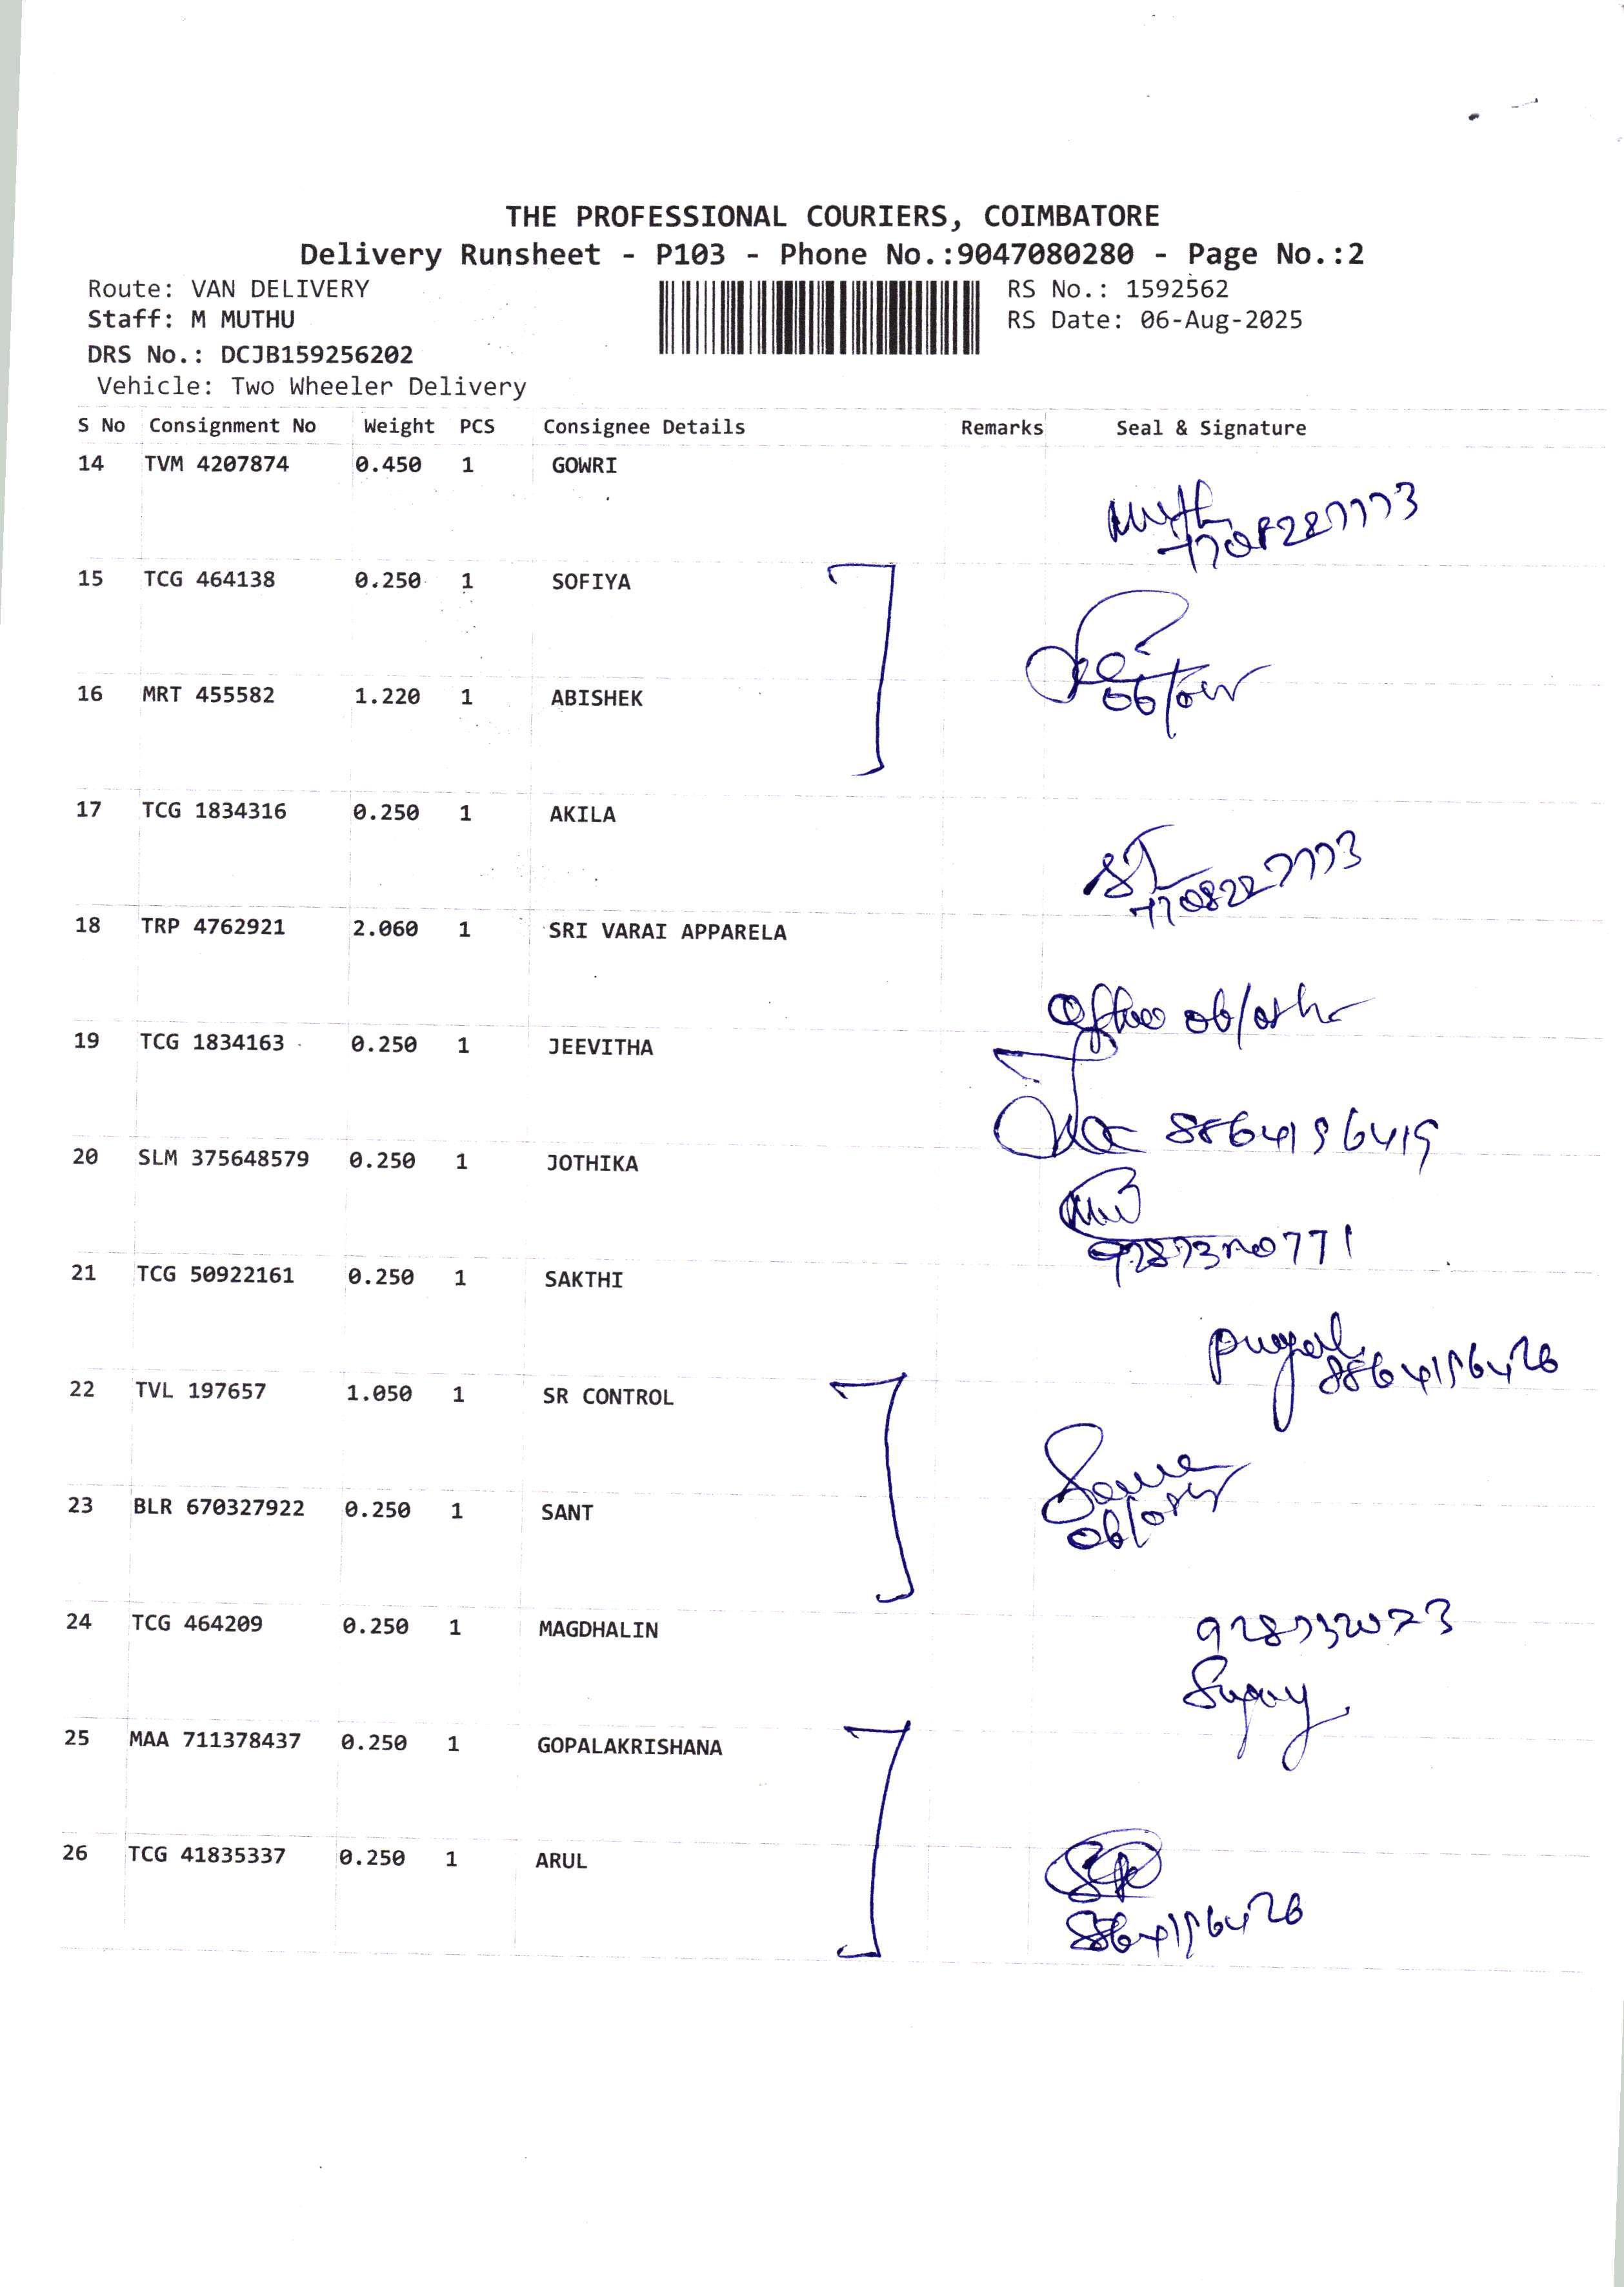 THE PROFESSIONAL COURIERS, COIMBATORE
Delivery Runsheet - P103 - Phone No.:9047080280 - Page No.:2
Route: VAN DELIVERY
RS No.: 1592562
Staff: M MUTHU
RS Date: 06-Aug-2025
DRS No.: DCJB159256202
Vehicle: Two Wheeler Delivery
S No Consignment No Weight PCS Consignee Details Remarks Seal & Signature
14 TVM 4207874 0.450 1 GOWRI
15 TCG 464138 0.250 1 SOFIYA
16 MRT 455582 1.220 1 ABISHEK
17 TCG 1834316 0.250 1 AKILA
18 TRP 4762921 2.060 1 SRI VARAI APPARELA
19 TCG 1834163 0.250 1 JEEVITHA
20 SLM 375648579 0.250 1 JOTHIKA
21 TCG 50922161 0.250 1 SAKTHI
22 TVL 197657 1.050 1 SR CONTROL
23 BLR 670327922 0.250 1 SANT
24 TCG 464209 0.250 1 MAGDHALIN
25 MAA 711378437 0.250 1 GOPALAKRISHANA
26 TCG 41835337 0.250 1 ARUL